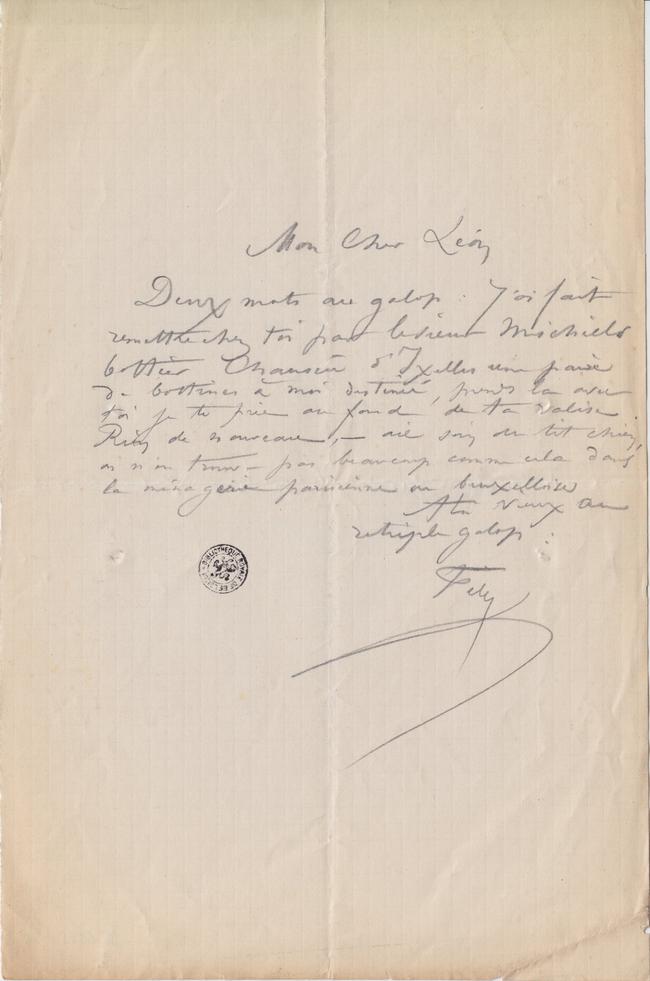 Mon Cher Léon
Deux mots au galop. J'ai fait
remettre chez toi par le sieur Michiels
bottier Chaussée d'Ixelles une paire
de bottines à moi destinée, prends la avec
toi je te prie au fond de ta valise.
Rien de nouveau, – aie soin du tit chien,
on n'en trouve pas beaucoup comme cela dans
la ménagerie parisienne ou bruxelloise
A toi vieux au
retriple galop.
Fély
BIBLIOTHÈQUE ROYALE DE BELGIQUE